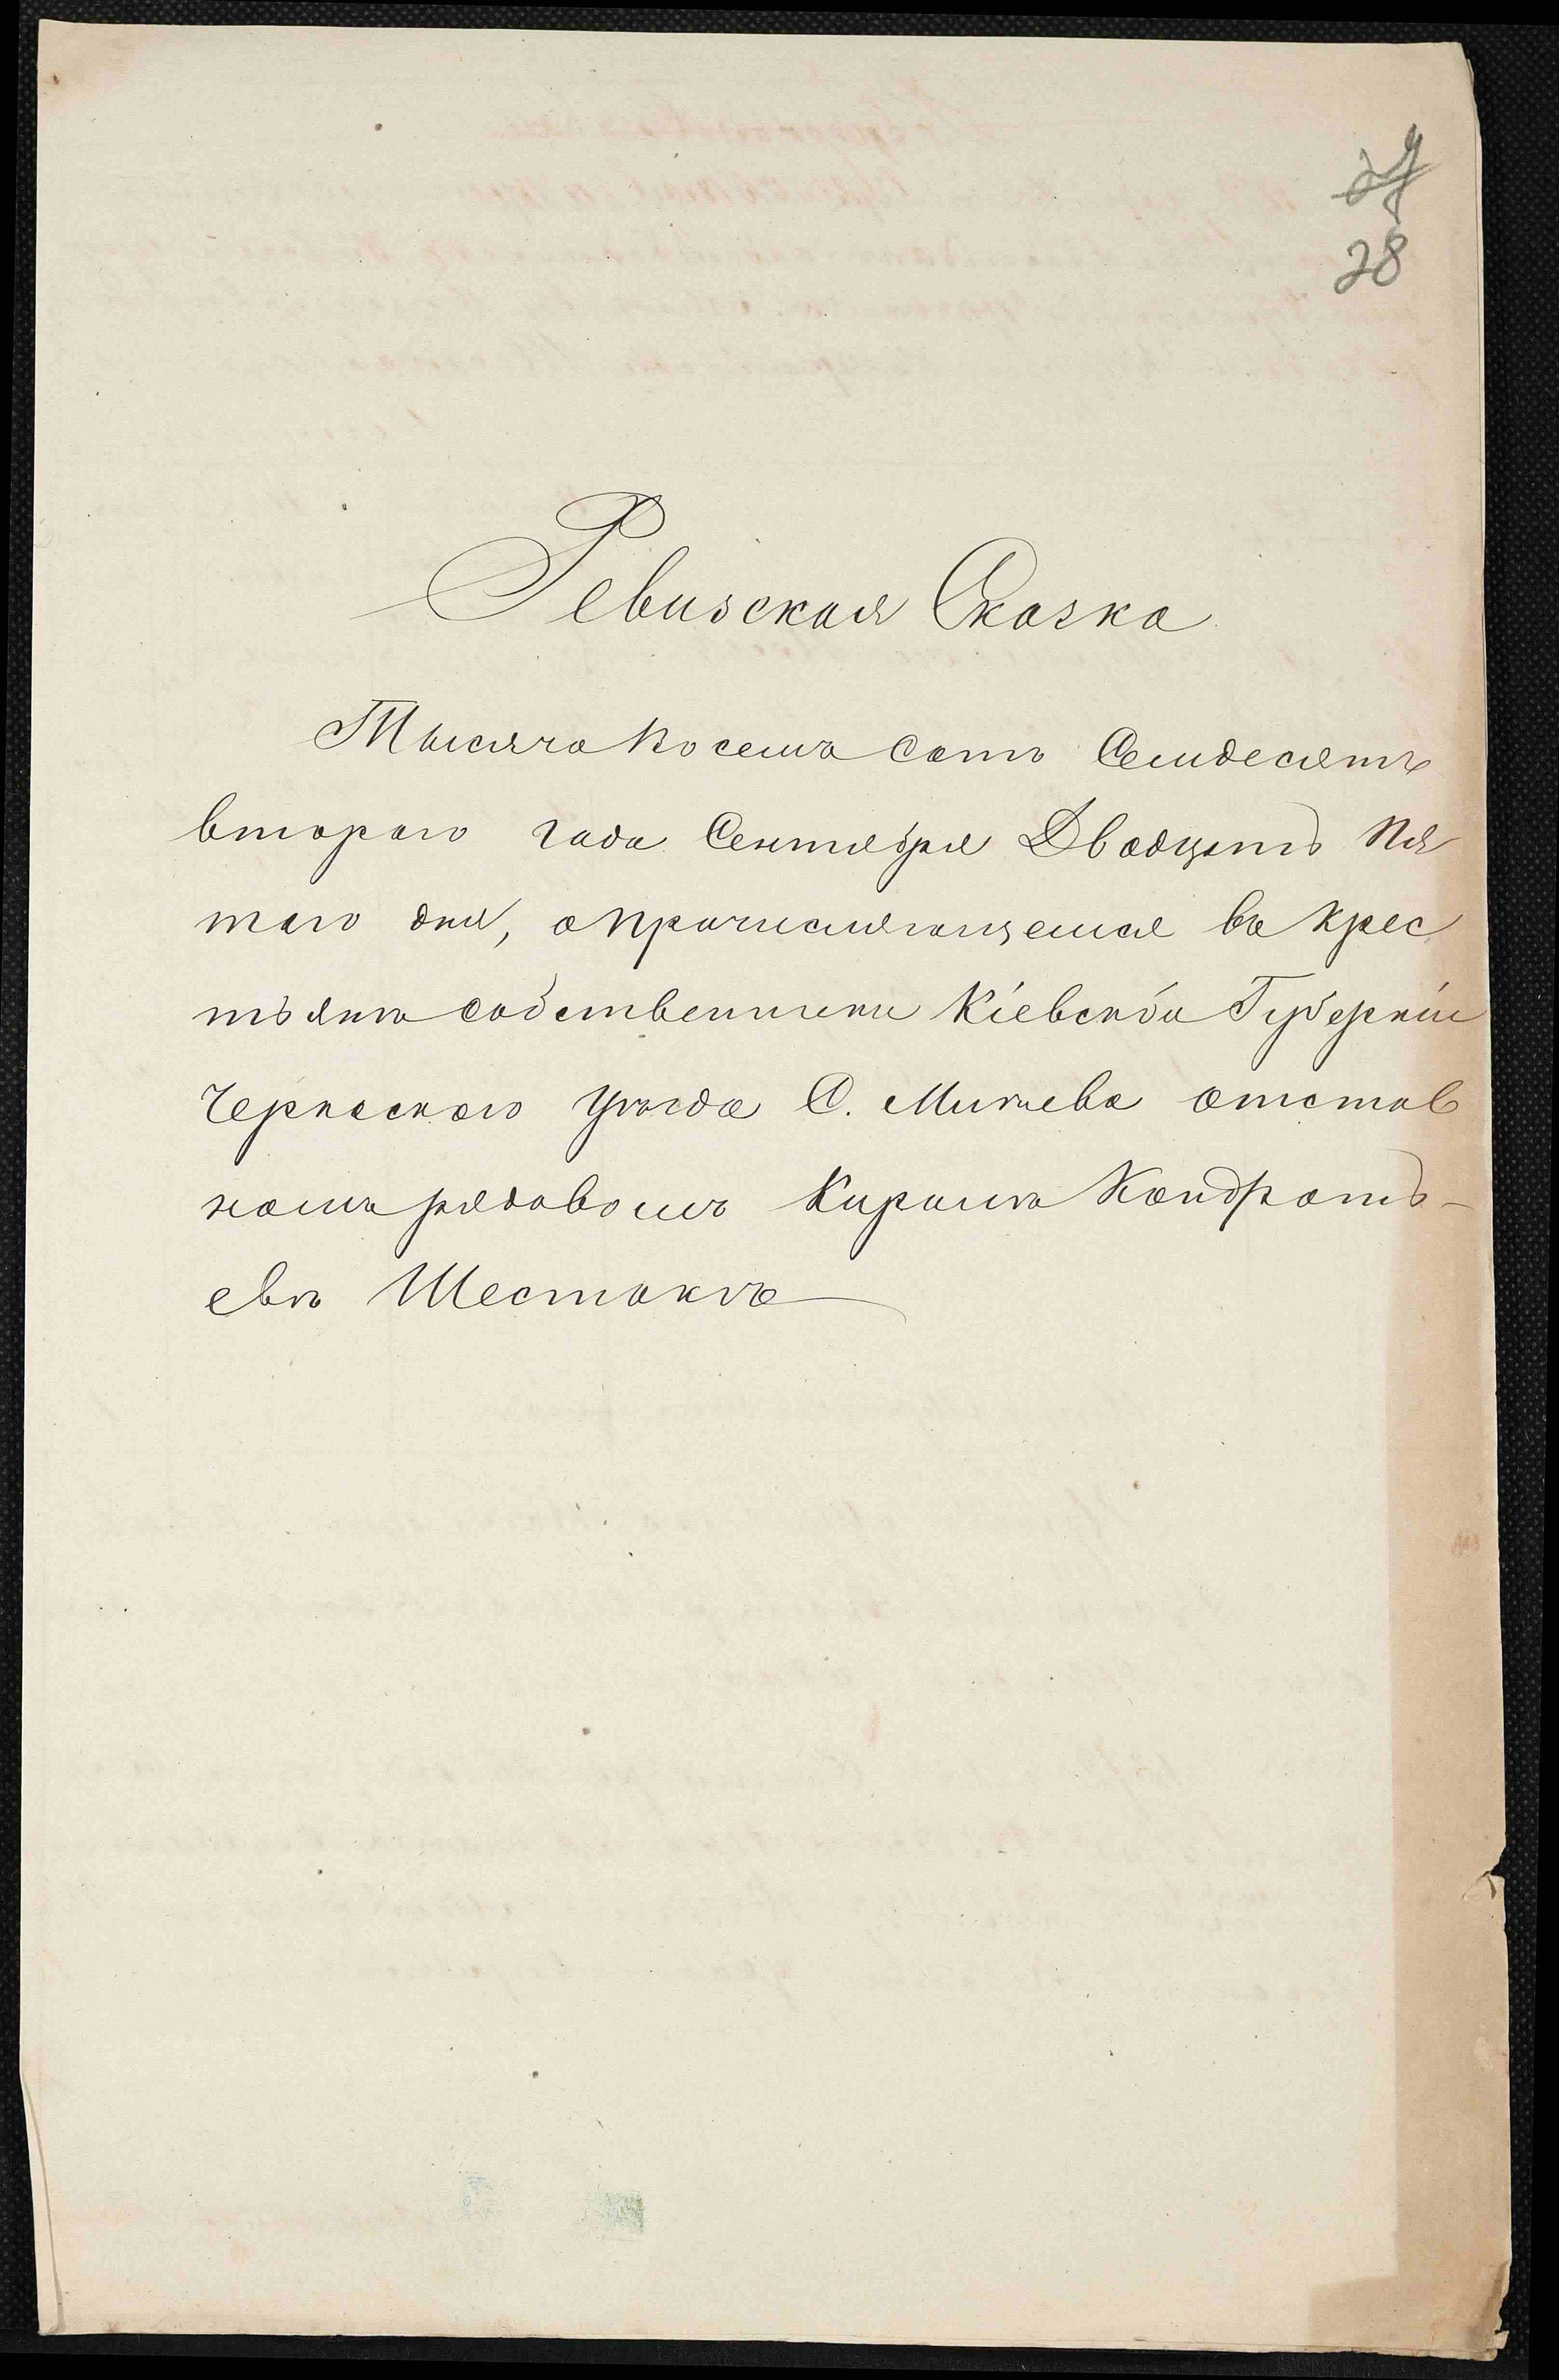 27
28
Ревизская Сказка
Тысяча Восемъ Сотъ Семдесятъ
втораго года Сентября Двадцать Пя
таго дня, о причисляющемся въ Крес
тьяне собственники Кіевской Губерніи
Черкаскаго уѣзда С. Млиева отстав
номъ рядовомъ Кирилѣ Кондрать-
евѣ Шестакѣ